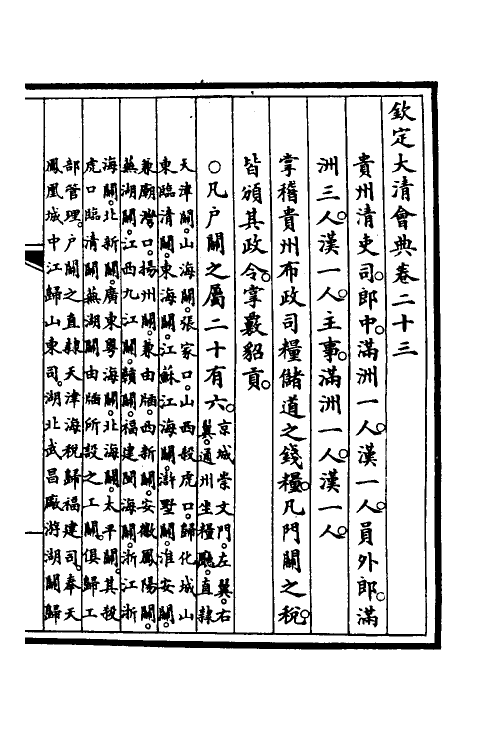 欽定大清會典卷二十三
貴州清吏司。郎中。滿洲一人。漢一人。員外郎。滿
洲三人。漢一人。主事。滿洲一人。漢一人。
掌稽貴州布政司糧儲道之錢糧。凡門關之稅。
皆頒其政令。掌數貂貢。
○凡戶關之屬二十有六。京城崇文門。左翼。右
翼。通州坐糧廳。直隸
天津關。山海關。張家口。山西殺虎口。歸化城。山
東臨清關。東海關。江蘇江海關。滸墅關。淮安關。
兼廟灣口。揚州關。兼由牐。西新關。安徽鳳陽關。
蕪湖關。江西九江關。贛關。福建閩海關。浙江浙
海關。北新關。廣東粵海關。北海關。太平關。其殺
虎口臨清關蕪湖關由牐所設之工關。俱歸工
部管理。戶關之直隸天津海稅歸福建司。奉天
鳳凰城中江歸山東司。湖北武昌廠游湖關歸